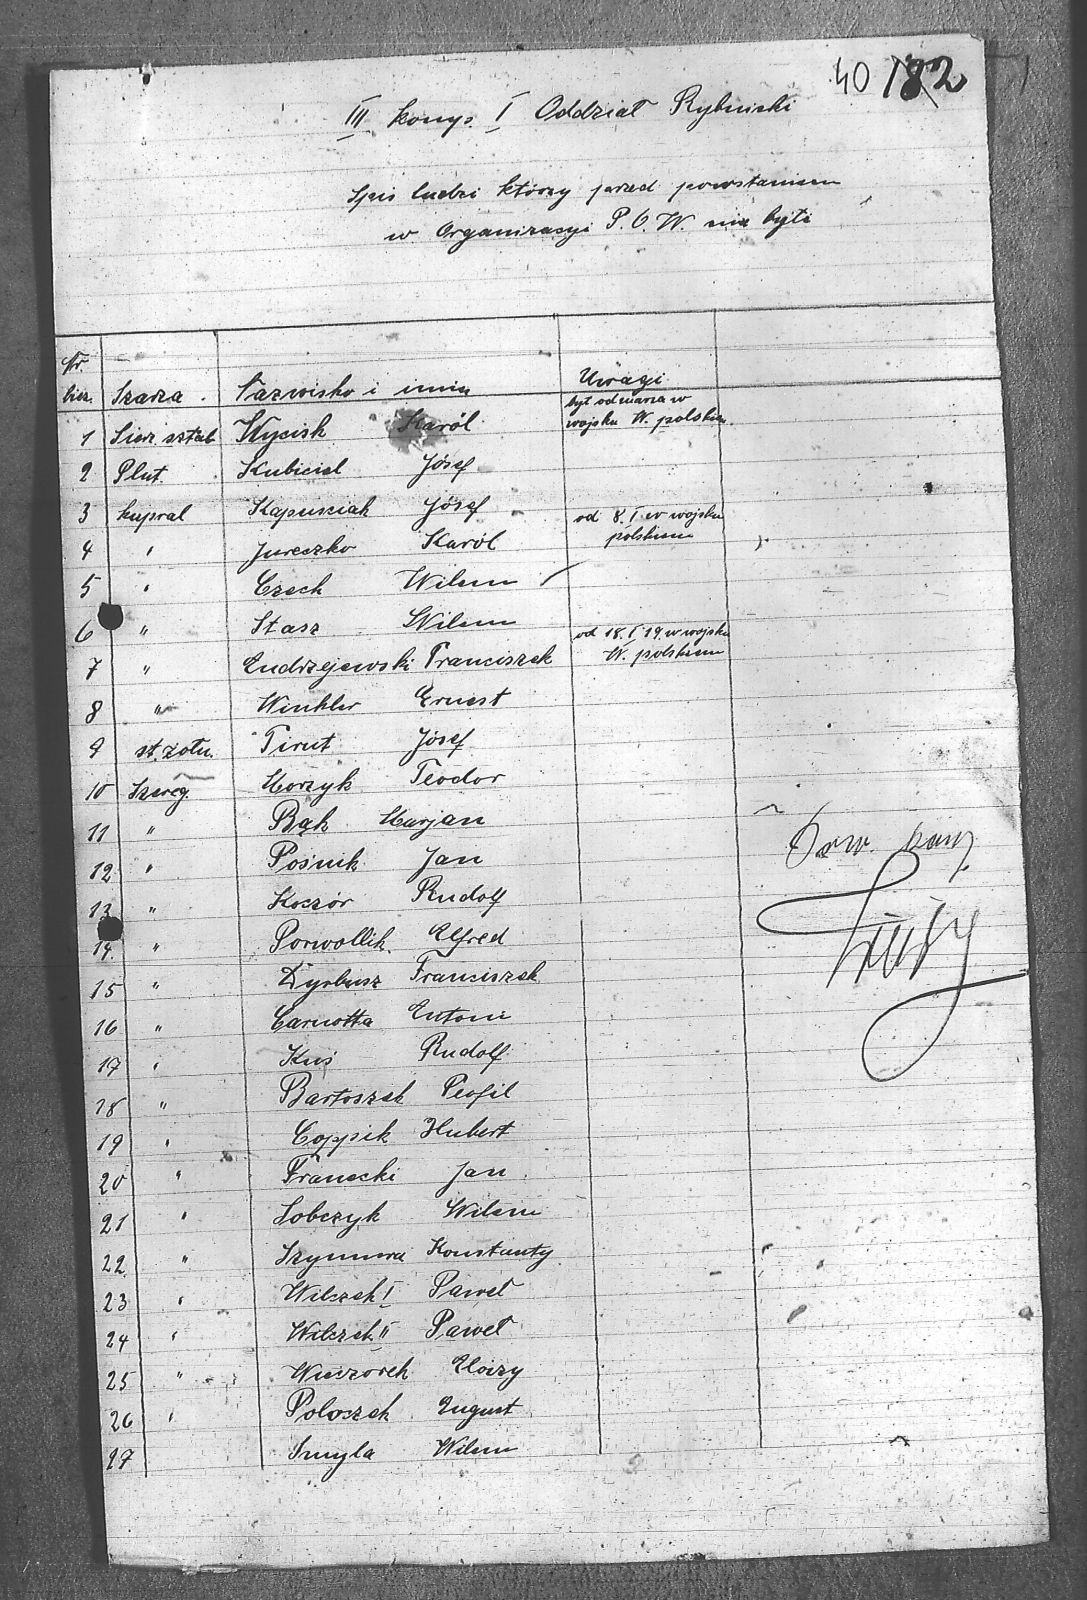 40 182
III komp. I Oddział Rybnicki
Spis ludzi którzy przed powstaniem
w Organizacyi P.O.W. nie byli
Nr. biez. Szarza. Nazwisko i imie Uwagi
1 Sierz. sztab Wycisk Karól był od marca w wojsku W. polskim.
2 Plut. Kubiciel Józef
3 kapral Kapusciak Józef
4 " Jureczko Karól od 8. I w wojsku polskiem
5 " Czech Wilem
6 " Stasz Wilem
7 " Endrzejewski Franciszek od 18. I 19. w wojsku W. polskiem
8 " Winkler Ernest
9 st. żołn. Tirut Józef
10 Szereg. Morzyk Teodor
11 " Bąk Marjan
12 " Pośnik Jan
13 " Koczór Rudolf
14. " Porwollik Alfred
15 " Dyrbusz Franciszek
16 " Carnotta Antoni
17 " Kuś Rudolf
18 " Bartoszek Teofil
19 " Coppik Hubert
20 " Franecki Jan
21 " Sobczyk Wilem
22 " Szymura Konstanty
23 " Wilczek I Paweł
24 " Wilczek II Paweł
25 " Wieczorek Eloizy
26 " Poloczek August
27 Smyla Wilem